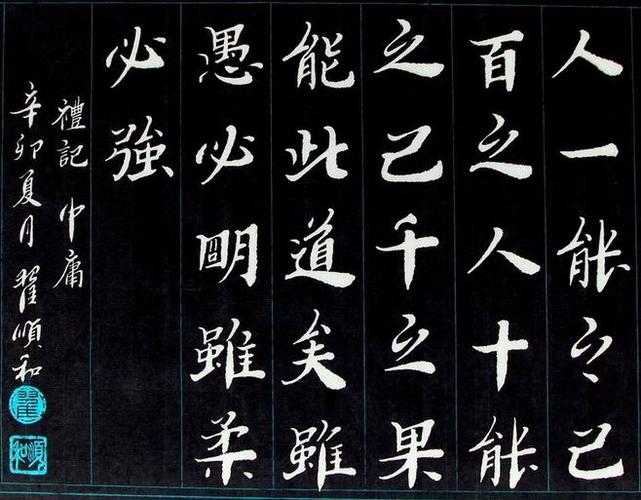 人一能之己
百之人十能
之己千之果
能此道矣雖
愚必明雖柔
必強
禮記 中庸
辛卯夏月 翟順和
翟
順和